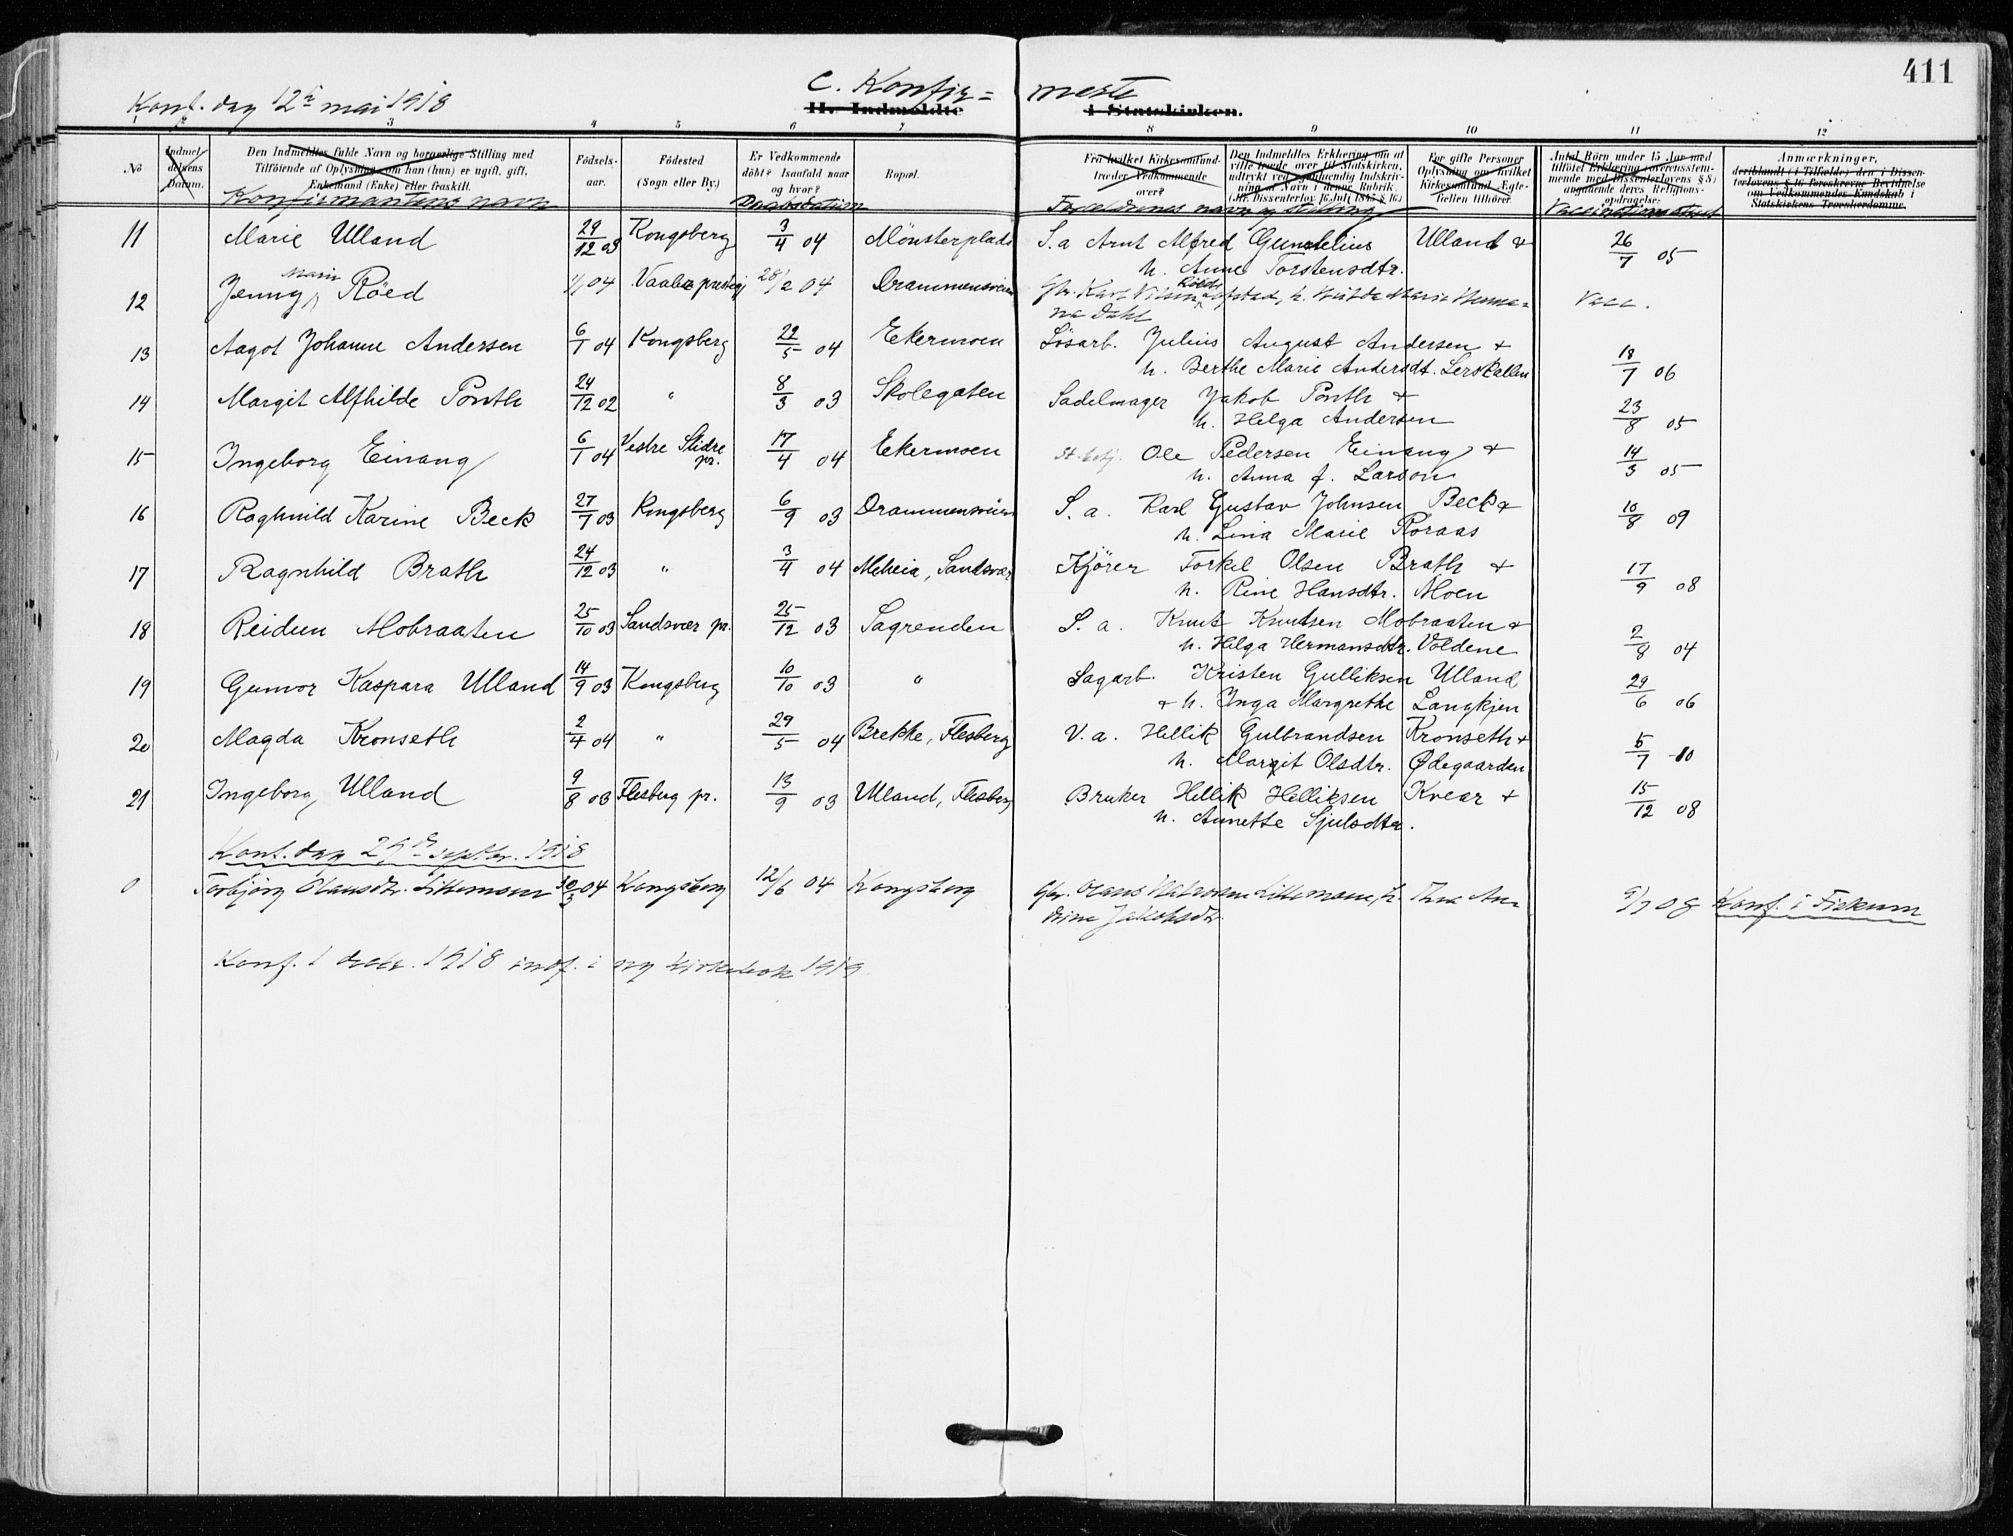 411
Konf. dag 12te mai 1918
C. Konfir= merte
H. Indmeldte i Statskirken.
1 2 3 4 5 6 7 8 9 10 11 12
No
Indmeldelsens Datum.
Den Indmeldtes fulde Navn og borgerlige Stilling med
Tilföiende af Oplysning om han (hun) er ugift, gift,
Enkemand (Enke) eller fraskilt.
Konfirmantens navn
Födsels-
aar.
Födested
(Sogn eller By.)
Er Vedkommende
döbt? Isaafald naar
og hvor?
Daabsdatum
Bopæl.
Fra hvilket Kirkesamfund
træder Vedkommende
over?
Den Indmeldtes Erklæring om at
ville træde over til Statskirken,
udtrykt ved egenhændig Indskriv-
ning af Navn i denne Rubrik
(jfr. Dissenterlov 16 Juli 1845 § 16.)
Forældrenes navn og stilling
For gifte Personer
Oplysning om hvilket
Kirkesamfund Ægte-
fællen tilhörer.
Antal Börn under 15 Aar med
tilföiet Erklæring (overensstem-
mende med Dissenterlovens § 8)
angaaende deres Religions-
opdragelse:
Anmærkninger,
deriblandt (i Tilfælde) den i Dissen-
terlovens § 16 foreskrevne Bevidnelse
om Vedkommendes Kundskab i
Statskirkens Troeslærdomme.
11 Marie Ulland 29/12 03 Kongsberg 3/4 04 Mønsterplads S. a Arnt Alfred Gundelius Ulland & 26/7 05
h. Anne Torstensdtr.
12 Jenny Marie Röed 1/1 04 Vaale prestegj 28/2 04 Drammensveien Vacc.
13 Aagot Johanne Andersen 6/1 04 Kongsberg 22/5 04 Ekermoen Løsarb. Julius August Andersen & 18/7 06
h. Berthe Marie Andersdt. Lerskallen
14 Margit Alfhilde Ponth 24/12 02 " 8/3 03 Skolegaten Sadelmager Jakob Ponth & 23/8 05
h. Helga Andersen
15 Ingeborg Einang 6/1 04 Vestre Slidre pr. 17/4 04 Ekermoen Ole Pedersen Einang & 14/3 05
h. Anna f. Larson
16 Raghnild Karine Beck 27/7 03 Kongsberg 6/9 03 Drammensveien S. a. Karl Gustav Johnsen Beck & 10/8 09
h. Lina Marie Roraas
17 Ragnhild Brath 24/12 03 " 3/4 04 Meheia, Sandsvær Kjører Torkel Olsen Brath & 17/9 08
h. Rine Hansdtr. Moen
18 Reidun Mobraaten 25/10 03 Sandsvær pr. 25/12 03 Sagrenden S. a. Knut Knutsen Mobraaten & 2/8 04
h. Helga Hermansdtr. Voldene
19 Gunvor Kaspara Ulland 14/9 03 Kongsberg 10/10 03 " Sagarb. Kristen Gulliksen Ulland 29/6 06
& h. Inga Margrethe Langkjen
20 Magda Kronseth 2/4 04 " 29/5 04 Brekke, Flesberg V. a. Hellik Gulbrandsen Kronseth & 5/7 10
h. Margit Olsdtr. Ødegaarden
21 Ingeborg Ulland 9/8 03 Flesberg pr. 13/9 03 Ulland, Flesberg Bruker Hellik Helliksen Kvear & 15/12 08
h. Annette Sjulsdtr.
Konf. dag 29de septbr. 1918
0 Torbjørg Olausdtr. 30/3 04 Kongsberg 12/6 04 Kongsberg 9/7 08 Konf. i Fiskum
Jakobsdtr.
Konf. 1 decbr. 1918 indf. i ny kirkebok 1919